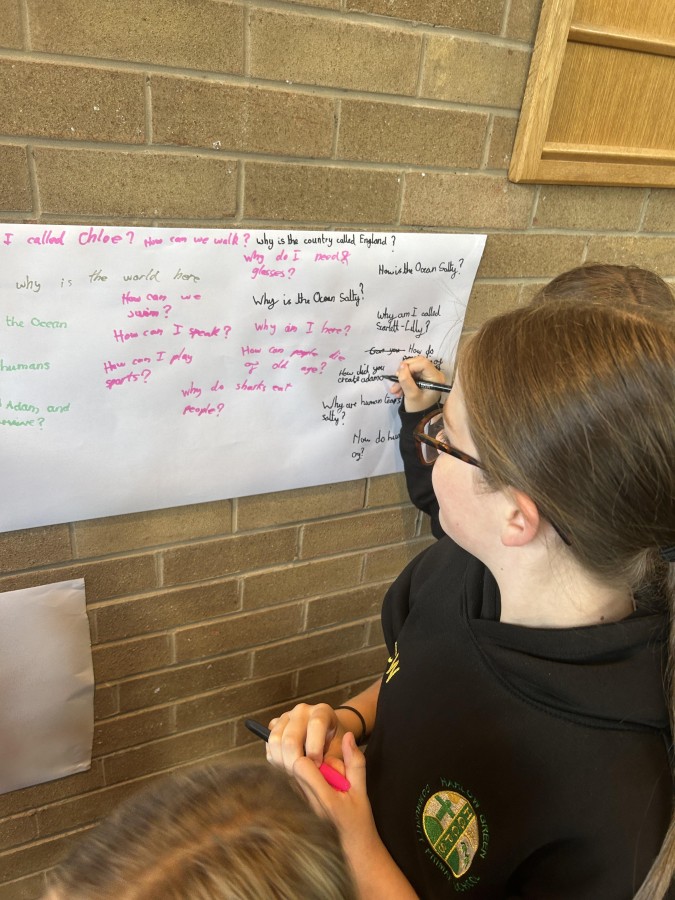 I called Chloe?
How can we walk?
why is the country called England?
why do I need
glasses?
How is the Ocean Salty?
why is the world here
How can we
swim?
Why is the Ocean Salty?
Why am I called
Scarlett-Lilly?
the Ocean
How can I speak?
why am I here?
How do
humans
How can I play
sports?
How can be
of old age?
How did you
create adam
why do sharks eat
people?
Adam, and
Why are human tears
salty?
How do